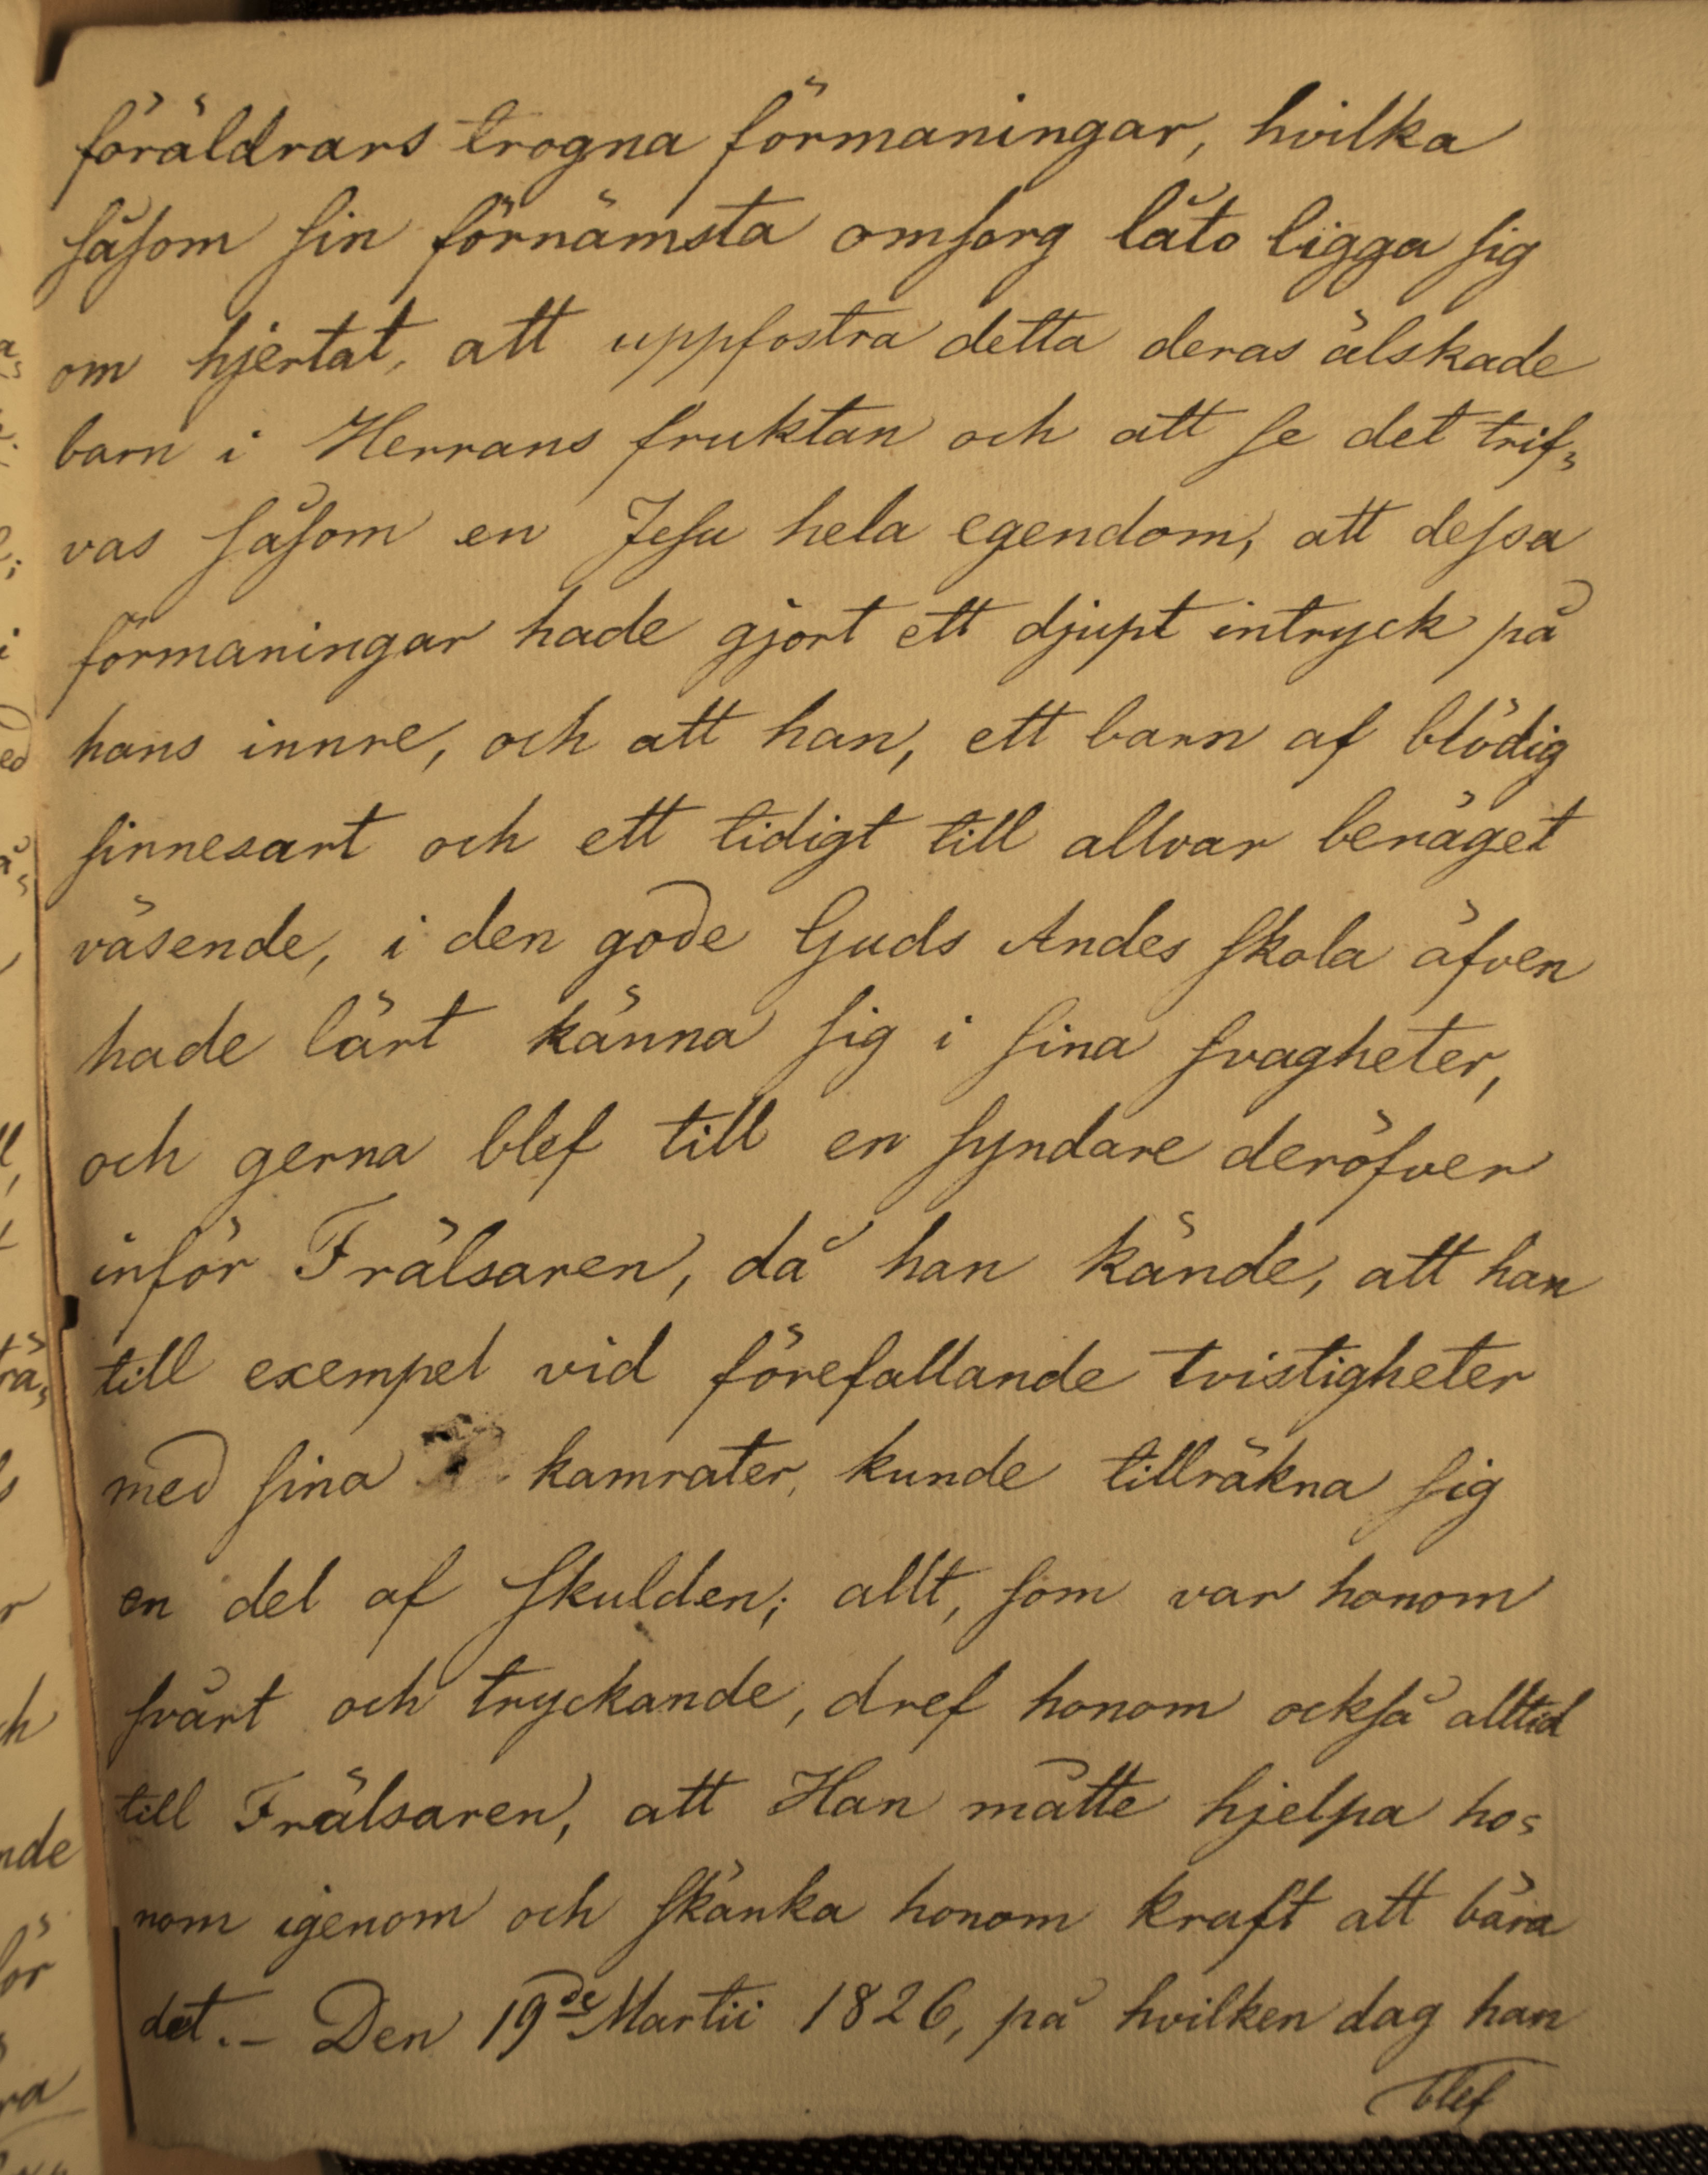 föräldrars trogna förmaningar, hvilka
såsom sin förnämsta omsorg låto ligga sig
om hjertat, att uppfostra detta deras älskade
barn i Herrans fruktan och att se det trif=
vas såsom en Jesu hela egendom, att dessa
förmaningar hade gjort ett djupt intryck på
hans innre, och att han, ett barn af blödig
sinnesart och ett tidigt till allvar benäget
väsende, i den gode Guds Andes skola äfven
hade lärt känna sig i sina svagheter,
och gerna blef till en syndare deröfver
inför Frälsaren, då han kände, att han
till exempel vid förefallande tvistigheter
med sina kamrater, kunde tillräkna sig
en del af skulden; allt, som var honom
svårt och tryckande, dref honom också alltid
till Frälsaren, att Han måtte hjelpa ho=
nom igenom och skänka honom kraft att bära
det. – Den 19de Martii 1826, på hvilken dag han
blef